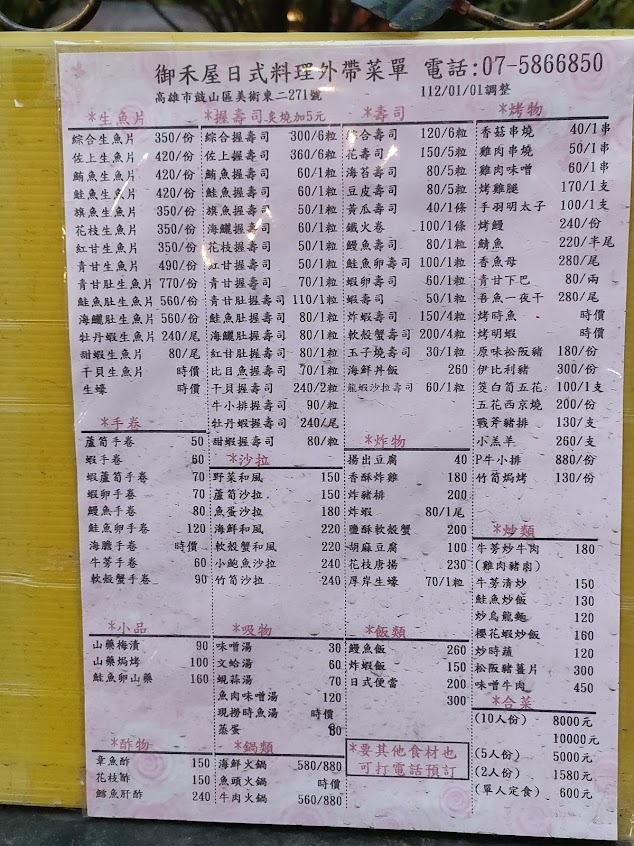 御禾屋日式料理外帶菜單 電話:07-5866850
高雄市鼓山區美術東二271號 112/01/01調整
*生魚片
綜合生魚片 350/份
佐上生魚片 420/份
鮪魚生魚片 420/份
鮭魚生魚片 420/份
旗魚生魚片 350/份
花枝生魚片 350/份
紅甘生魚片 350/份
青甘生魚片 490/份
青甘肚生魚片 770/份
鮭魚肚生魚片 560/份
海鱺肚生魚片 560/份
牡丹蝦生魚片 240/尾
甜蝦生魚片 80/尾
干貝生魚片 時價
生蠔 時價
*手卷
蘆筍手卷 50
蝦手卷 60
蝦蘆筍手卷 70
蝦卵手卷 70
鰻魚手卷 80
鮭魚卵手卷 120
海膽手卷 時價
牛蒡手卷 60
軟殼蟹手卷 90
*小品
山藥梅漬 90
山藥焗烤 100
鮭魚卵山藥 160
*酢物
章魚酢 150
花枝酢 150
鱈魚肝酢 240
*握壽司炙燒加5元
綜合握壽司 300/6粒
佐上握壽司 360/6粒
鮪魚握壽司 60/1粒
鮭魚握壽司 60/1粒
旗魚握壽司 50/1粒
海鱺握壽司 60/1粒
花枝握壽司 50/1粒
紅甘握壽司 50/1粒
青甘握壽司 70/1粒
青甘肚握壽司 110/1粒
鮭魚肚握壽司 80/1粒
海鱺肚握壽司 80/1粒
紅甘肚握壽司 80/1粒
比目魚握壽司 70/1粒
干貝握壽司 240/2粒
牛小排握壽司 90/粒
牡丹蝦握壽司 240/尾
甜蝦握壽司 80/粒
*沙拉
野菜和風 150
蘆筍沙拉 150
魚蛋沙拉 180
海鮮和風 220
軟殼蟹和風 220
小鮑魚沙拉 240
竹筍沙拉 240
*吸物
味噌湯 30
文蛤湯 60
蜆蒜湯 70
魚肉味噌湯 120
現撈時魚湯 時價
蒸蛋 80
*鍋類
海鮮火鍋 580/880
魚頭火鍋 時價
牛肉火鍋 560/880
*壽司
綜合壽司 120/6粒
花壽司 150/5粒
海苔壽司 80/5粒
豆皮壽司 80/5粒
黃瓜壽司 40/1條
鐵火卷 100/1條
鰻魚壽司 80/1粒
鮭魚卵壽司 100/1粒
蝦卵壽司 60/1粒
蝦壽司 50/1粒
炸蝦壽司 150/4粒
軟殼蟹壽司 200/4粒
玉子燒壽司 30/1粒
海鮮丼飯 260
龍蝦沙拉壽司 60/1粒
*炸物
揚出豆腐 40
香酥炸雞 180
炸豬排 200
炸蝦 80/1尾
鹽酥軟殼蟹 200
胡麻豆腐 100
花枝唐揚 230
厚岸生蠔 70/1粒
*飯類
鰻魚飯 260
炸蝦飯 150
日式便當 200
300
*要其他食材也
可打電話預訂
*烤物
香菇串燒 40/1串
雞肉串燒 50/1串
雞肉味噌 60/1串
烤雞腿 170/1支
手羽明太子 100/1支
烤鰻 240/份
鯖魚 220/半尾
香魚母 280/尾
青甘下巴 80/兩
吾魚一夜干 280/尾
烤時魚 時價
烤明蝦 時價
原味松阪豬 180/份
伊比利豬 300/份
筊白筍五花 100/1支
五花西京燒 200/份
戰斧豬排 130/支
小羔羊 260/支
P牛小排 880/份
竹筍焗烤 130/份
*炒類
牛蒡炒牛肉 180
(雞肉豬肉)
牛蒡清炒 150
鮭魚炒飯 130
炒烏龍麵 120
櫻花蝦炒飯 160
炒時蔬 120
松阪豬薑片 300
味噌牛肉 450
*合菜
(10人份) 8000元
10000元
(5人份) 5000元
(2人份) 1580元
(單人定食) 600元